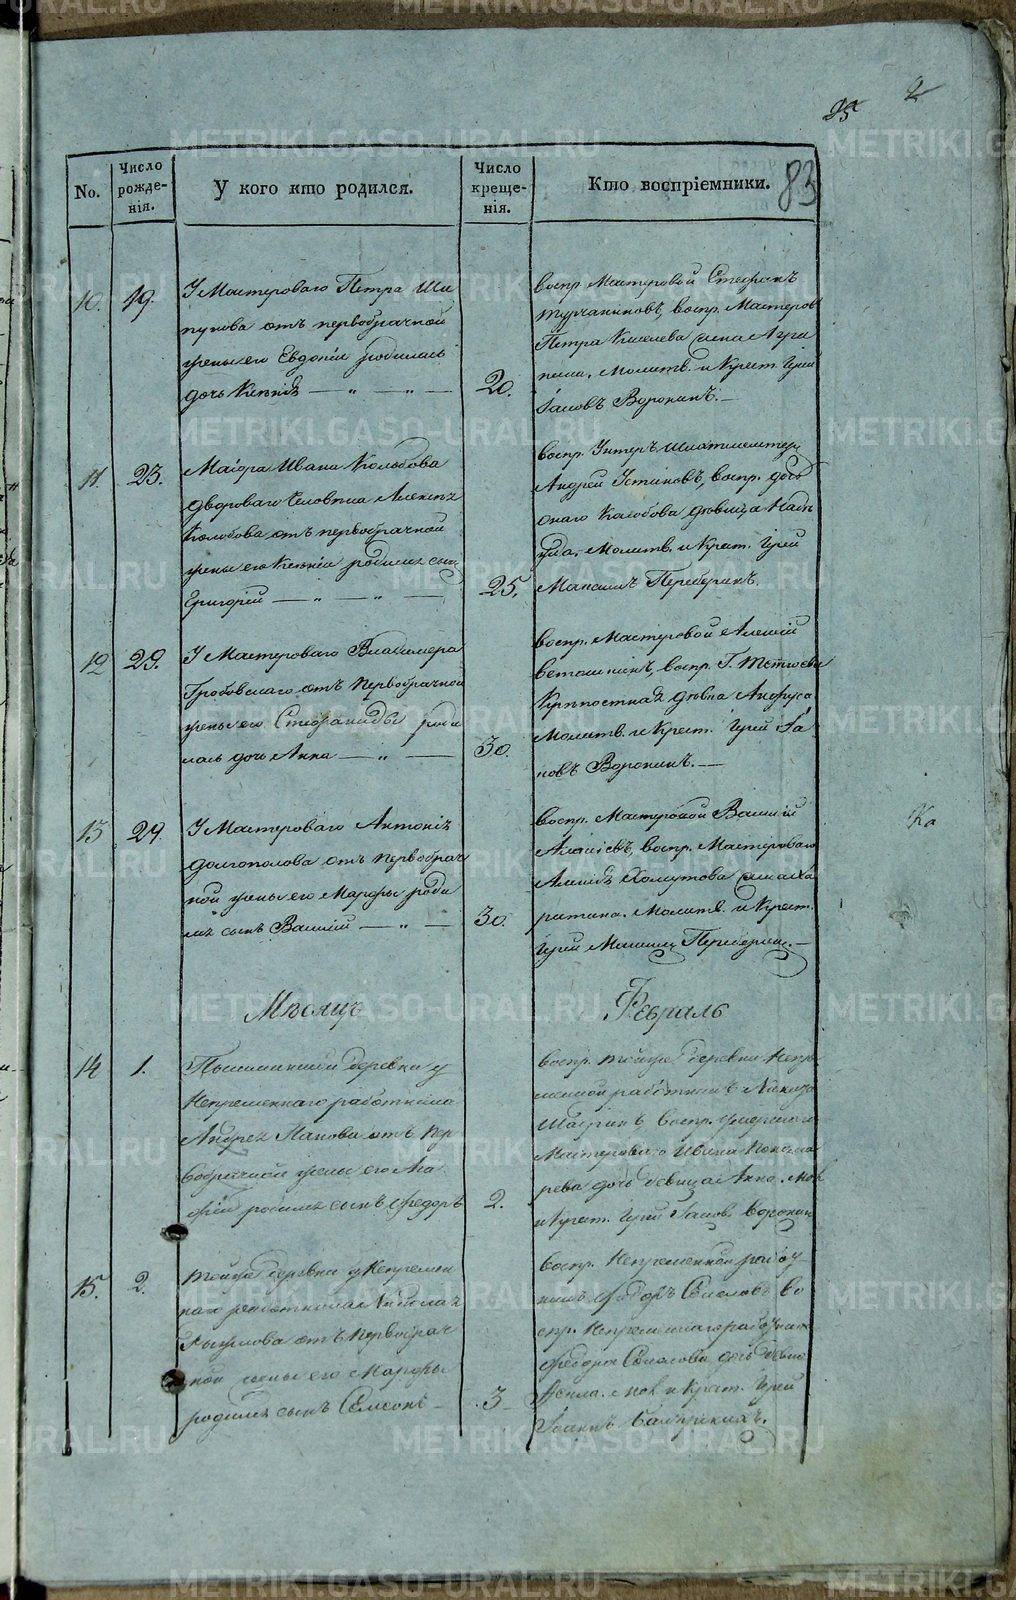 25 2
83
No.
Число рожде-нія.
У кого кто родился.
Число креще-нія.
Кто воспріемники.
10. 19.
У Мастероваго Петра Ши
пунова отъ первобрачной
жены его Евдокіи родилась
дочь Ксенія
20.
воспр. Мастеровой Стефанъ
Турчаниновъ, воспр. Мастеров
Петра Киселева жена Агра
пина. Молитв. и Крест. Іерей
Іаковъ Воронинъ.
11. 23.
Маіора Ивана
двороваго человека Алексея
Колобова отъ первобрачной
жены его Ксеніи родился сынъ
Григорій
25.
воспр. Унтеръ Шихтмейстеръ
Андрей Устиновъ, воспр. дочь
онаго Колобова девица Наде
жда. Молитв. и Крест. Іерей
Максимъ Переберинъ.
12 29.
У Мастероваго Владимера
Гробовскаго отъ первобрачной
жены его Стефаниды роди
лась дочь Анна
30.
воспр. Мастеровой Алексій
Ветошкинъ, воспр. Г.
Крепостная девка Анфуса
Молитв. и Крест. Іерей Іа
ковъ Воронинъ.
13 29.
У Мастероваго Антонія
Долгополова отъ первобрач
ной жены его Марфы роди
лся сынъ Василій
30.
воспр. Мастеровой Василій
воспр. Мастероваго
Алексія Хомутова жена Ха
ритина. Молитв. и Крест.
Іерей Максимъ Переберинъ.
Ка
Месяцъ Февраль
14 1.
Пышминской деревни у
Непременнаго работника
Андрея Панова отъ пер
вобрачной жены его Ага
фіи родился сынъ Федоръ
2.
воспр. тойже деревни Непре
менной работникъ
воспр. умершаго
Мастероваго Ивана Понома
рева дочь девица Анна. Мол
и Крест. Іерей Іаков. Воронин
15. 2.
Тойже деревни у Непремен
наго работника Николая
отъ первобрач
ной жены его Марфы
родился сынъ Симеонъ
3
воспр. Непременной работ
никъ Федоръ во
спр. Непременнаго работника
Федора дочь девица
Мол и Крест. Іерей
Іоаннъ
METRIKI.GASO-URAL.RU